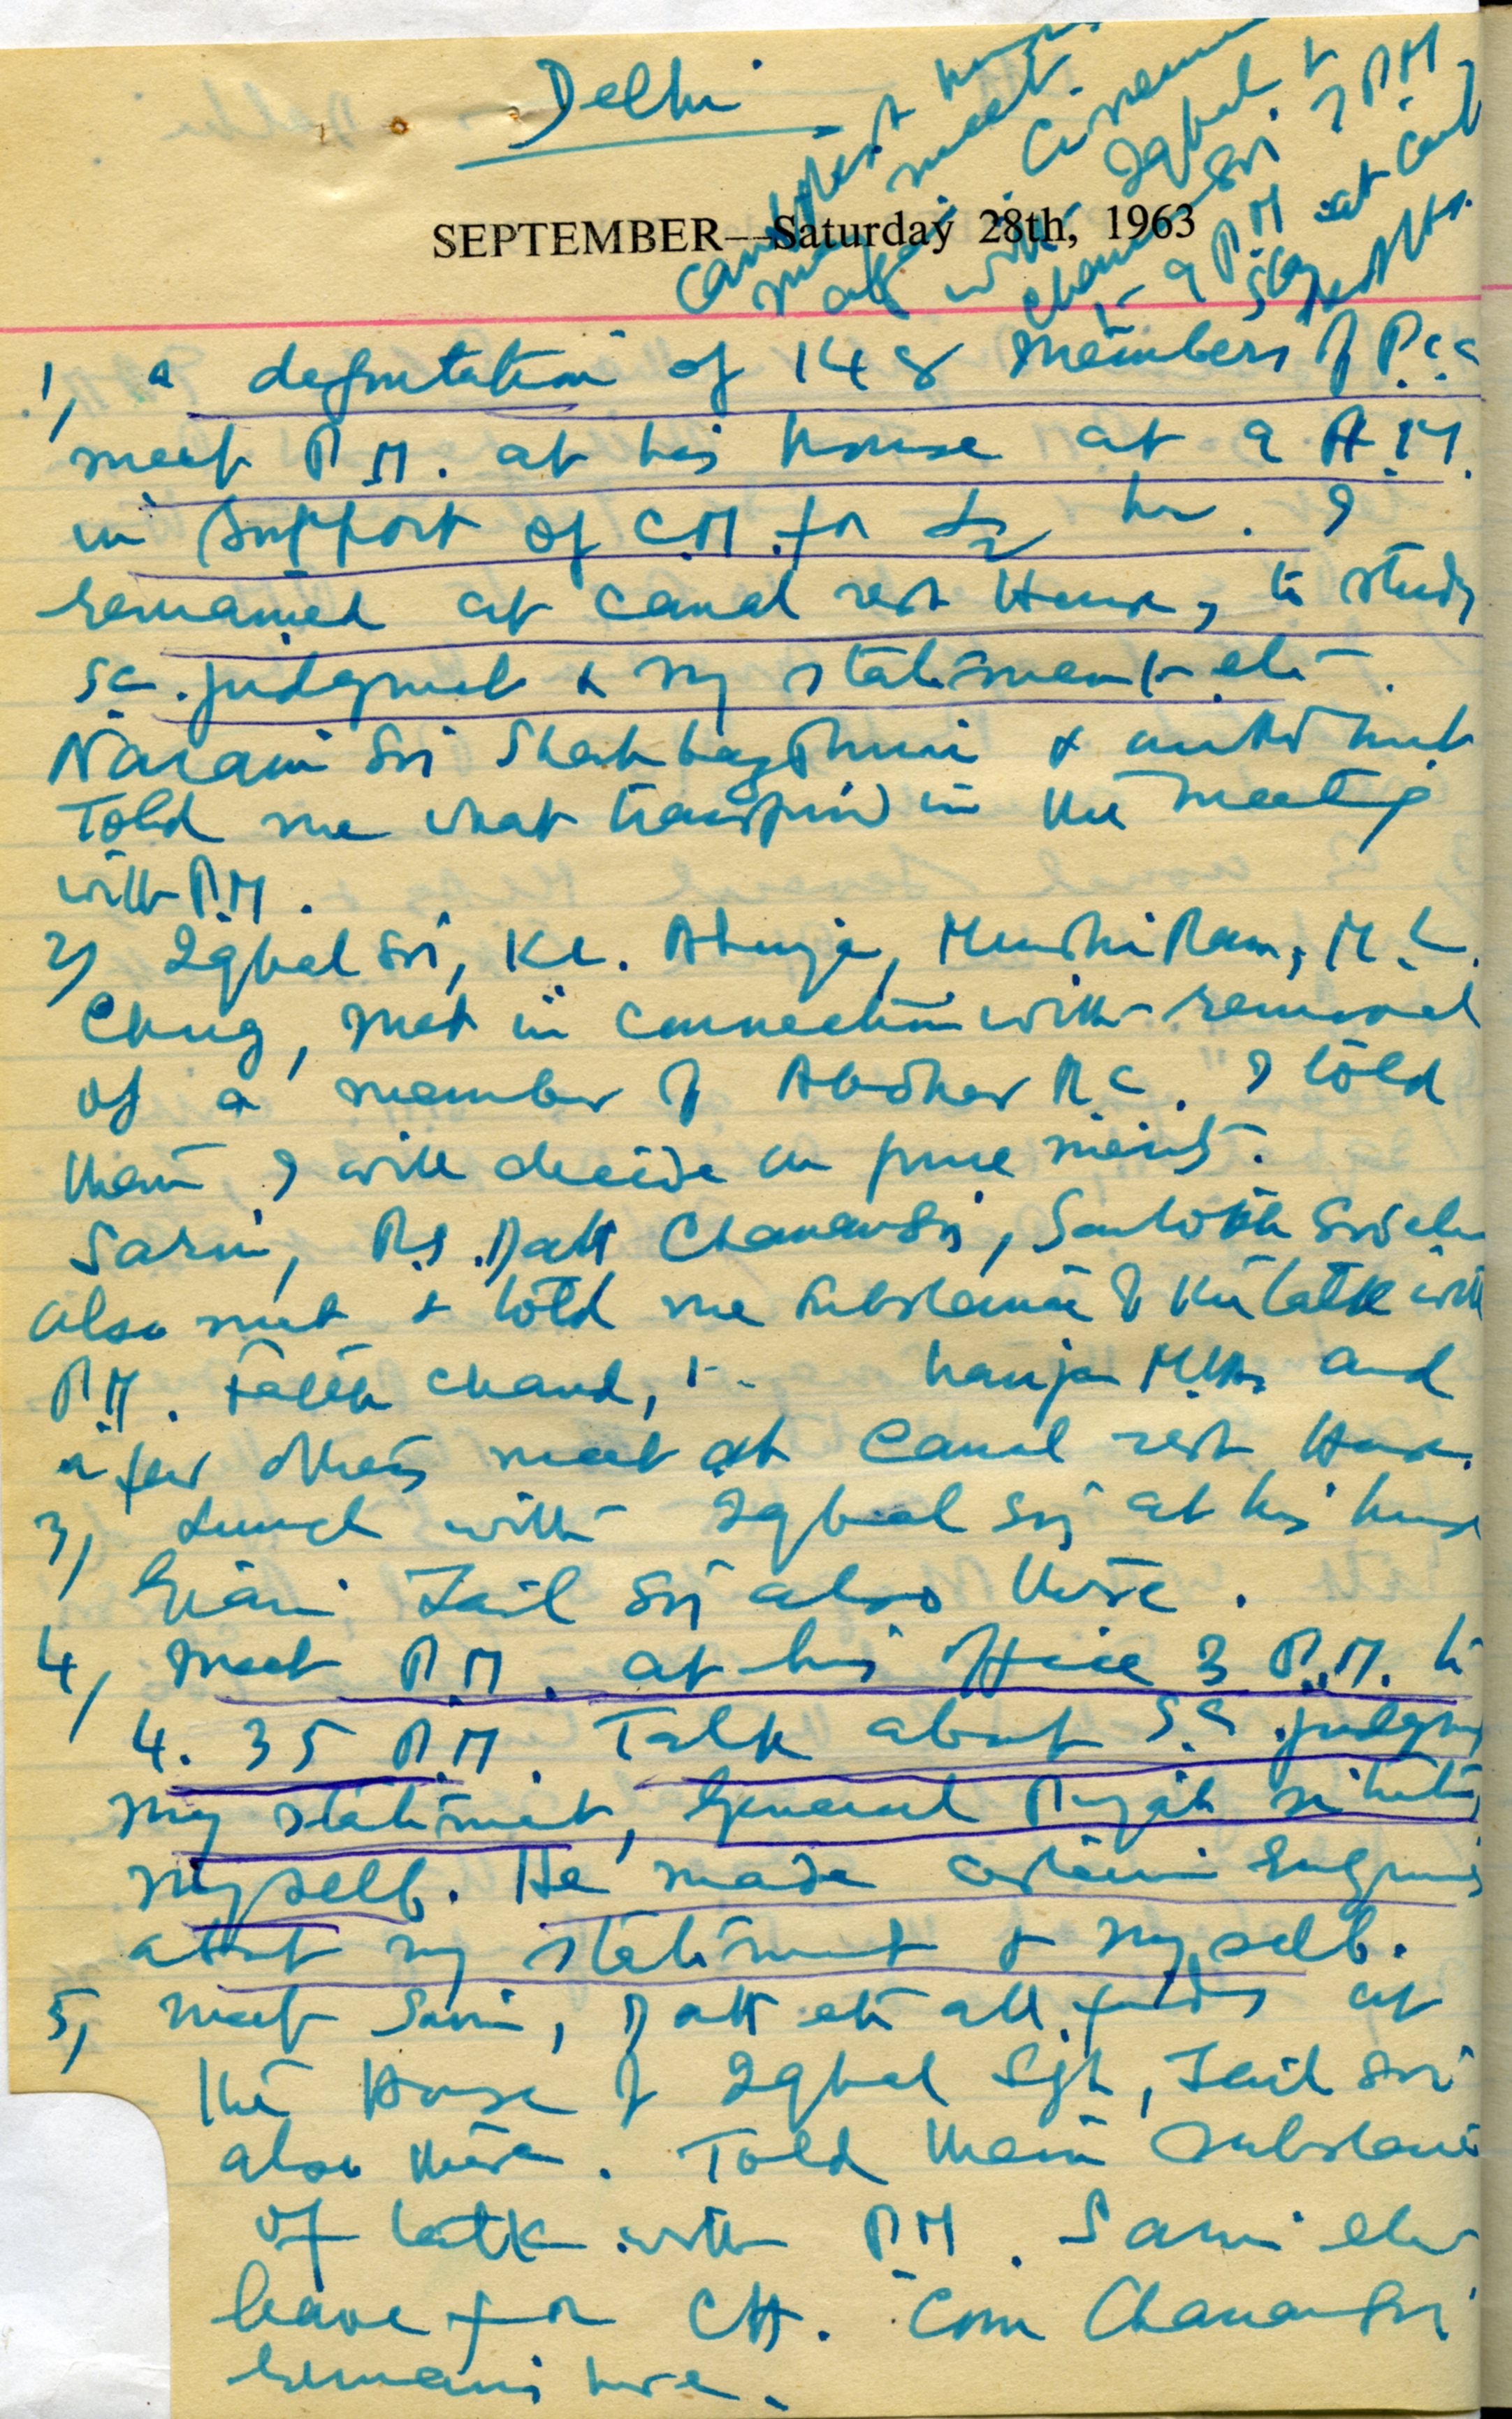 Delhi
meet
with Iqbal &
7 PM
- 9 P.M. at
SEPTEMBER—Saturday 28th, 1963
1, a deputation of 148 members of P.C.C
meet P.M. at his house at 9 A.M.
in support of C.M. for ½ hr. I
remained at canal rest House, to study
S.C. judgment & my statement etc.
Narain Sri Shahbazpuri &
Told me what transpired in the meeting
with P.M.
2, Iqbal Sri, K.L. Ahuja, Munshi Ram, M.L.
Chug, met in connection with removal
of a member of Abohar M.C. I told
them I will decide on pure merits.
Sarin, Datt Chanan Sri, Santokh Sri etc
also met & told me substance of the talk with
P.M. Fateh Chand, and
a few others meet at Canal rest House.
3, Lunch with Iqbal Sri at his house
Giani Zail Sri also there.
4, Meet P.M. at his office 3 P.M. to
4.35 P.M. Talk about S.C. judgment
my statement, General Punjab situation,
myself. He made certain enquiries
about my statement & myself.
5, meet Sarin, Datt etc all friends at
the House of Iqbal Sgh, Zail Sri
also there. Told them substance
of talk with P.M. Sarin etc
leave for CH. Com Chanan Sri
remains here.